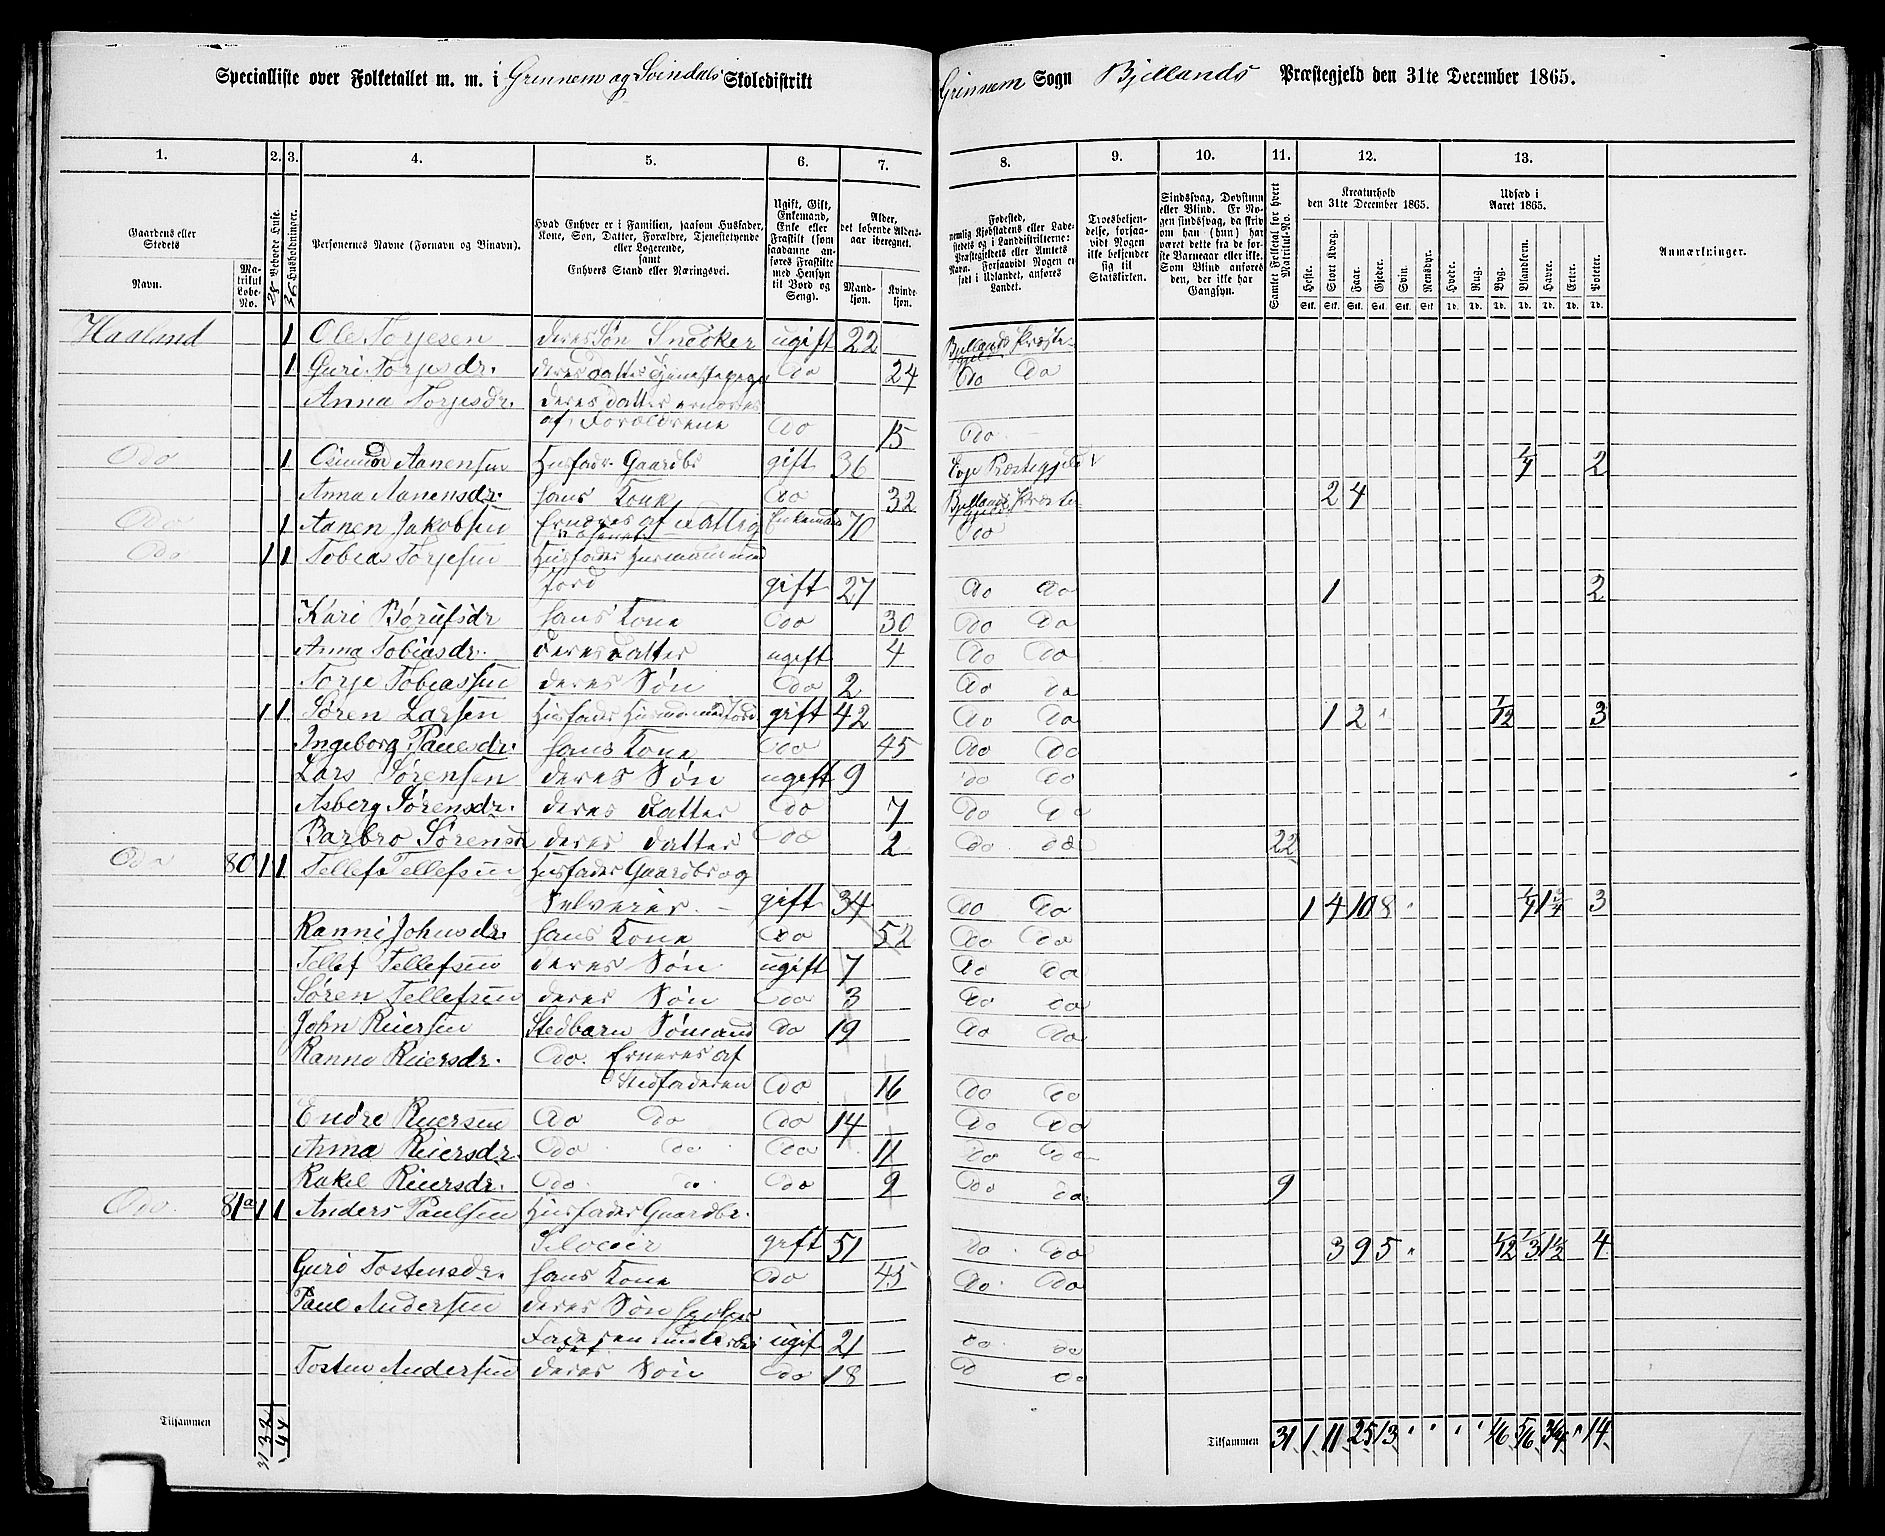 Specialliste over Folketallet m. m. i Grennem og Svindals Skoledistrikt
Grinnem Sogn Bjellands Præstegjeld den 31te December 1865.
1. 2. 3. 4. 5. 6. 7. 8. 9. 10. 11. 12. 13.
Gaardens eller Stedets
Navn.
Matrikul Løbe-No.
28 Beboede Huse.
36 Husholdninger.
Personernes Navne (Fornavn og Tilnavn).
Hvad Enhver er i Familien, saasom Husfader, Kone, Søn, Datter, Forældre, Tjenestetyende eller Logerende,
samt
Enhvers Stand eller Næringsvei.
Ugift, Gift, Enkemand, Enke eller Frastilt (som saadanne anføres Frastilte med Hensyn til Bord og Seng).
Alder, det løbende Aldersaar iberegnet.
Mandkjøn. Kvindekjøn.
Fødested,
nemlig Kjøbstadens eller Ladestedets og i Landdistrikterne: Præstegjeldets eller Amtets Navn. Forsaavidt Nogen er født i Udlandet, anføres Landet.
Troesbekjendelse, forsaavidt Nogen ikke bekjender sig til Statskirken.
Sindssvag, Døvstum eller Blind. Er Nogen sindssvag, da skriv om han (hun) har været dette fra de første Barneaar eller ikke. Som Blind anføres den, der ikke har Gangsyn.
Samlet Folketal for hvert Matrikul-No.
Kreaturhold den 31te December 1865.
Heste. Stort Kvæg. Faar. Gjeder. Svin. Rensdyr.
Udsæd i Aaret 1865.
Hvede. Rug. Byg. Blandkorn. Havre. Erter. Poteter.
Stk. Stk. Stk. Stk. Stk. Stk. Td. Td. Td. Td. Td. Td. Td.
Anmærkninger.
Haaland 1 Ole Torjesen deres Søn Snedker ugift 22 Bjellands Præstegjeld
1 Guri Torjesdr. deres Datter do 24 do do
Anna Torjesdr. deres Datter ernæres
af Forældrene do 15 do
do 1 Osmund Aanensen Husfader Gaardbr gift 36 Evje Præstegjeld 1/4 2
Anna Aanensdr. hans Kone do 32 Bjellands Præstegjeld 2 4
do 1 Aanen Jakobsen Ernæres af Datter og Enkemand 70 do
do 1 1 Tobias Torjesen Husfader Husmand med
Jord gift 27 do do 1 2
Kari Børufsdr hans Kone do 30 do do
Anna Tobiasdr. deres Datter ugift 4 do do
Torje Tobiassen deres Søn do 2 do do
1 1 Søren Larsen Husfader Husmand med Jord gift 42 do do 1 2 1/12 3
Ingeborg Paulsdr. hans Kone do 45 do do
Lars Sørensen deres Søn ugift 9 do do
Asberg Sørensdr. deres Datter do 7 do do
Barbro Sørensd deres datter do 2 do do 22
do 80 1 1 Tellef Tellefsen Husfader Gaardbr og
Selveier gift 34 do do 1 4 10 8 1/4 1 3/4 3
Ranni Johnsdr. hans Kone do 52 do do
Tellef Tellefsen deres Søn ugift 7 do do
Søren Tellefsen deres Søn do 3 do do
John Reiersen Stedbarn Sømand do 19 do do
Ranno Reiersdr. do. Ernæres af
Stedfaderen do 16 do do
Endre Reiersen do do do 14 do do
Anna Reiersdr. do do do 11 do do
Rakel Reiersdr. do do do 9 do do 9
do 81a 1 1 Anders Paulsen Husfader Gaardbr.
Selveier gift 51 do do 3 9 5 1/12 1/3 1 1/2 4
Guro Tostensdr. hans Kone do 45 do do
Paul Andersen deres Søn hjelper
Faderen ugif 21 do do
Tosten Andersen deres Søn do 18 do do
Tilsammen
Tilsammen 31 1 11 25 13 1/6 5/6 3 1/4 14